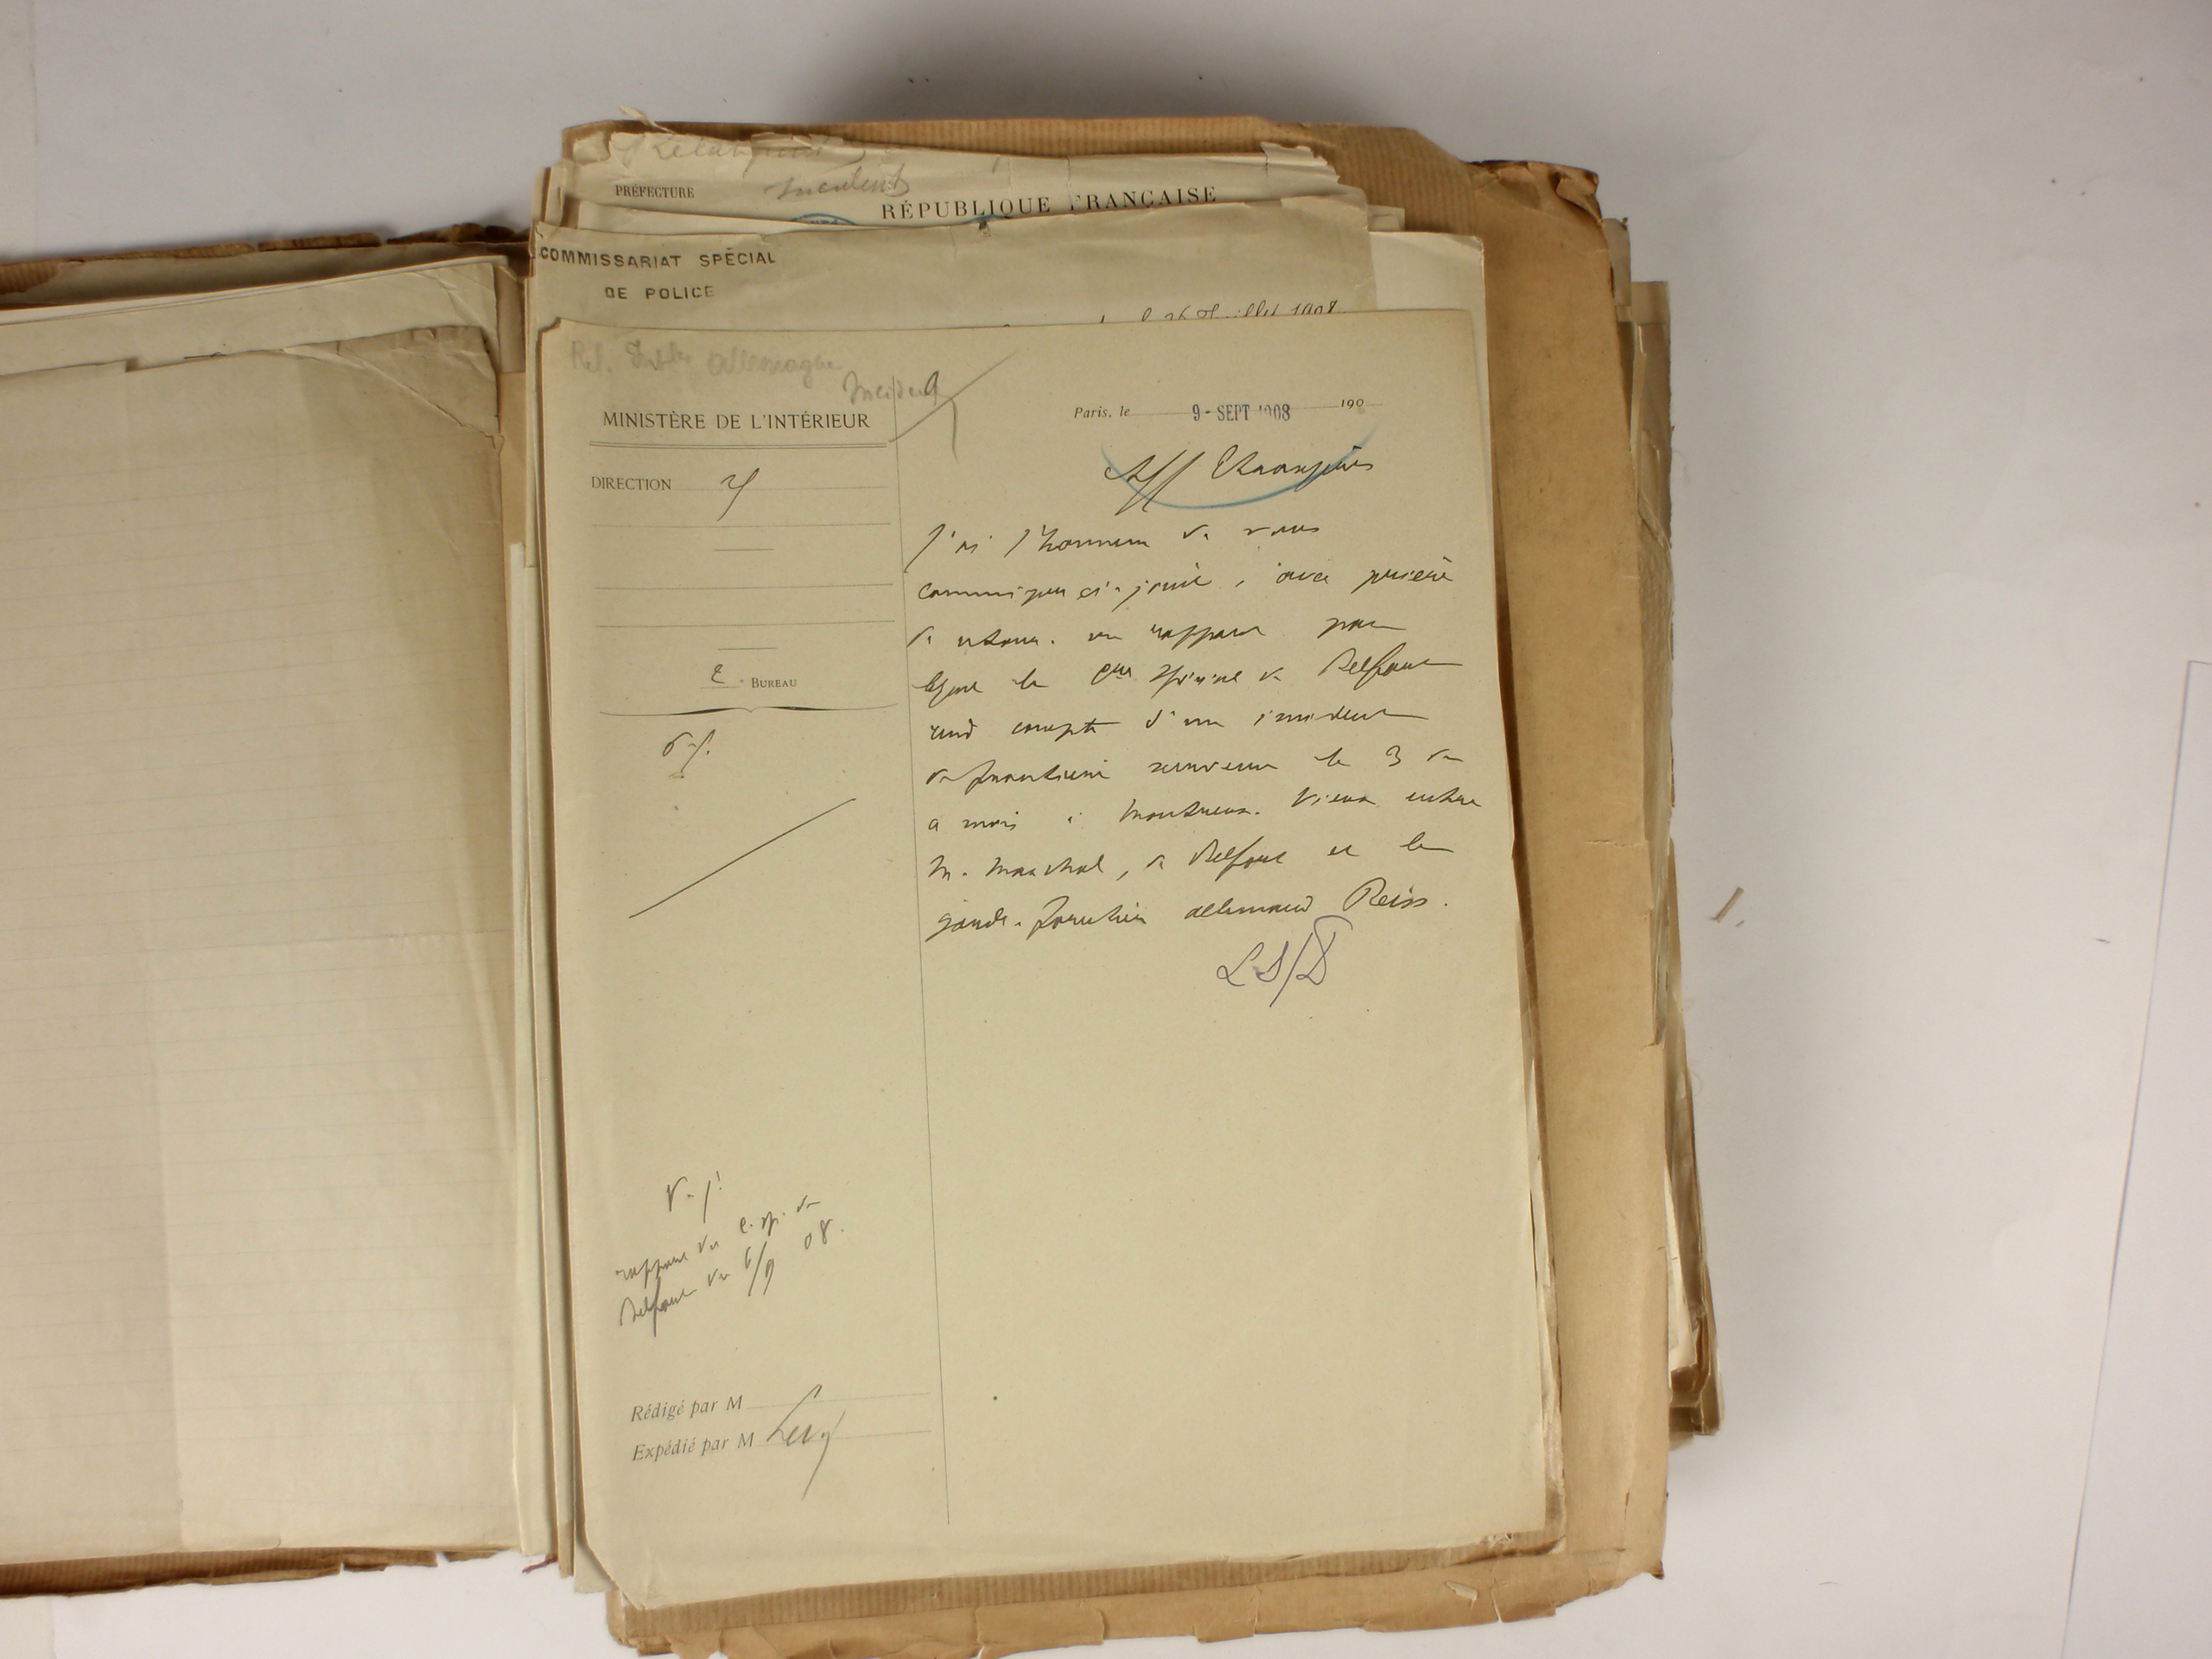 PRÉFECTURE
Incident
RÉPUBLIQUE FRANÇAISE
COMMISSARIAT SPÉCIAL
DE POLICE
Rel. Allemagne
Incident
MINISTÈRE DE L'INTÉRIEUR
Paris, le 9 - SEPT 1908 190
DIRECTION
Aff Etrangères
J'ai l'honneur de vous
communiquer ci-joint, avec prière
de retour. un rapport par
lequel le Cre spécial de Belfort
rend compte d'un incident
de frontière survenu le 3 de
ce mois à Montreux-Vieux entre
M. Marchal, de Belfort et le
garde-forestier allemand Reiss.
2 e BUREAU
rapport du C. sp. de
Belfort du 6/9 08.
Rédigé par M
Expédié par M Levy